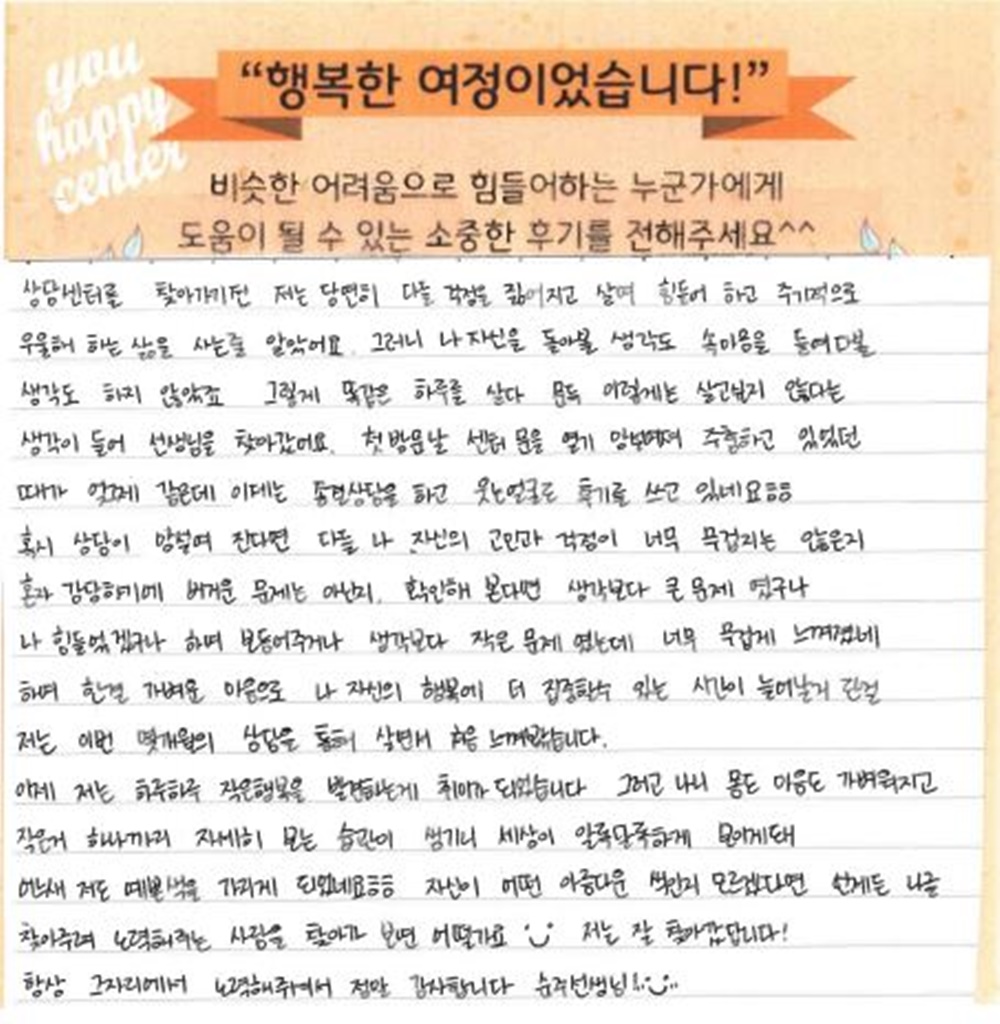 you
happy
center
“행복한 여정이었습니다!”
비슷한 어려움으로 힘들어하는 누군가에게
도움이 될 수 있는 소중한 후기를 전해주세요^^
상담센터를 찾아가기전 저는 당연히 다들 걱정을 짊어지고 살며 힘들어 하고 주기적으로
우울해 하는 삶을 사는줄 알았어요. 그러니 나 자신을 돌아볼 생각도 속마음을 들여다볼
생각도 하지 않았죠 그렇게 똑같은 하루를 살다 문득 이렇게는 살고싶지 않다는
생각이 들어 선생님을 찾아갔어요. 첫 방문날 센터 문을 열기 망설여져 주춤하고 있었던
때가 엊그제 같은데 이제는 종결상담을 하고 웃는얼굴로 후기를 쓰고 있네요ㅎㅎ
혹시 상담이 망설여 진다면 다들 나 자신의 고민과 걱정이 너무 무겁지는 않은지
혼자 감당하기에 버거운 문제는 아닌지. 확인해 본다면 생각보다 큰 문제 였구나
나 힘들었겠구나 하며 보듬어주거나 생각보다 작은 문제 였는데 너무 무겁게 느껴졌네
하며 한결 가벼운 마음으로 나 자신의 행복에 더 집중할수 있는 시간이 늘어날거 란걸
저는 이번 몇개월의 상담을 통해 살면서 처음 느껴봤습니다.
이제 저는 하루하루 작은행복을 발견하는게 취미가 되었습니다 그러고 나니 몸도 마음도 가벼워지고
작은거 하나까지 자세히 보는 습관이 생기니 세상이 알록달록하게 보이게돼
어느새 저도 예쁜색을 가지게 되었네요ㅎㅎ 자신이 어떤 아름다운 색인지 모르겠다면 언제든 나를
찾아주려 노력해주는 사람을 찾아가 보면 어떨가요 저는 잘 찾아갔답니다!
항상 그자리에서 노력해주셔서 정말 감사합니다 선생님!